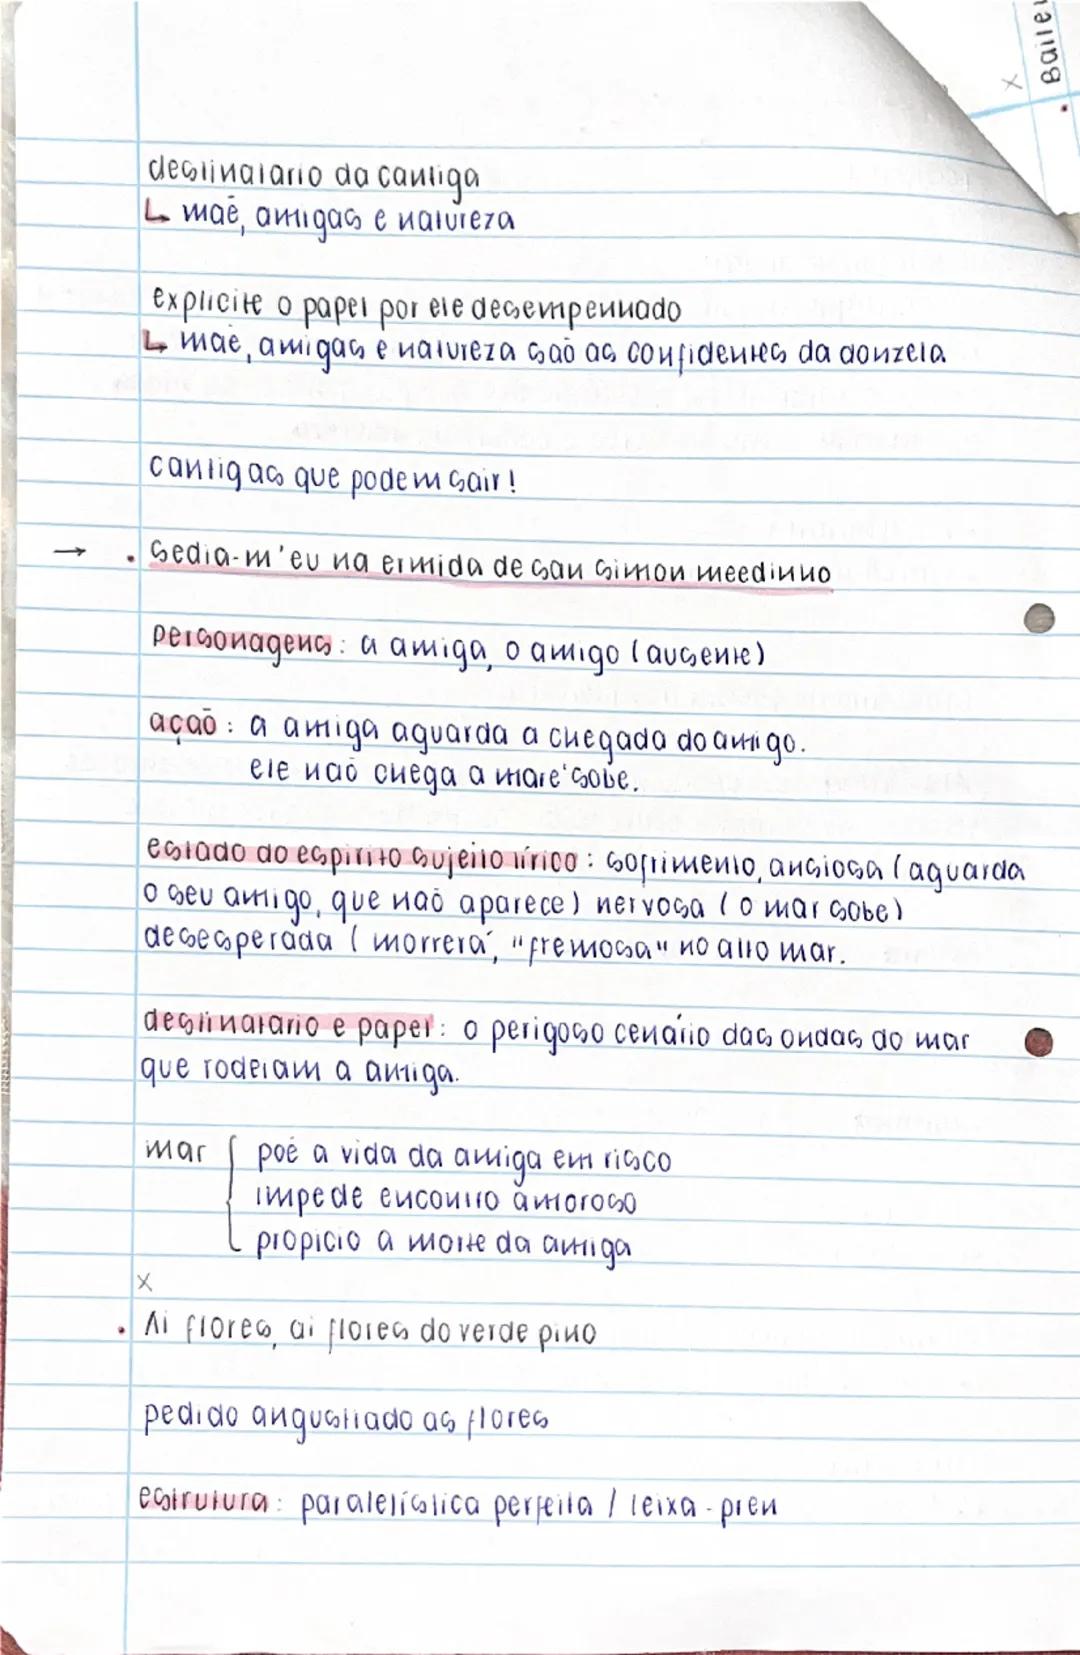 • Bailei
x
destinatario da cantiga
↳ maẽ, amigas e natureza
explicite o papel por ele desempenhado
↳ maẽ, amigas e natureza saõ as confidentes da donzela
cantigas que podem sair!
→ • Sedia-m'eu na ermida de san simon meedinho
personagens: a amiga, o amigo (ausente)
açaõ: a amiga aguarda a chegada do amigo.
ele naõ chega a mare' sobe.
estado do espirito sujeito lírico: sofrimento, ansiosa (aguarda
o seu amigo, que naõ aparece) nervosa (o mar sobe)
desesperada (morrerá, "fremosa" no alto mar.
destinatário e papel: o perigoso cenário das ondas do mar
que rodeiam a amiga.
mar { poẽ a vida da amiga em risco
impede encontro amoroso
propicio a morte da amiga
x
• Ai flores, ai flores do verde pino
pedido angustiado as flores
estrutura: paralelística perfeita / leixa-pren